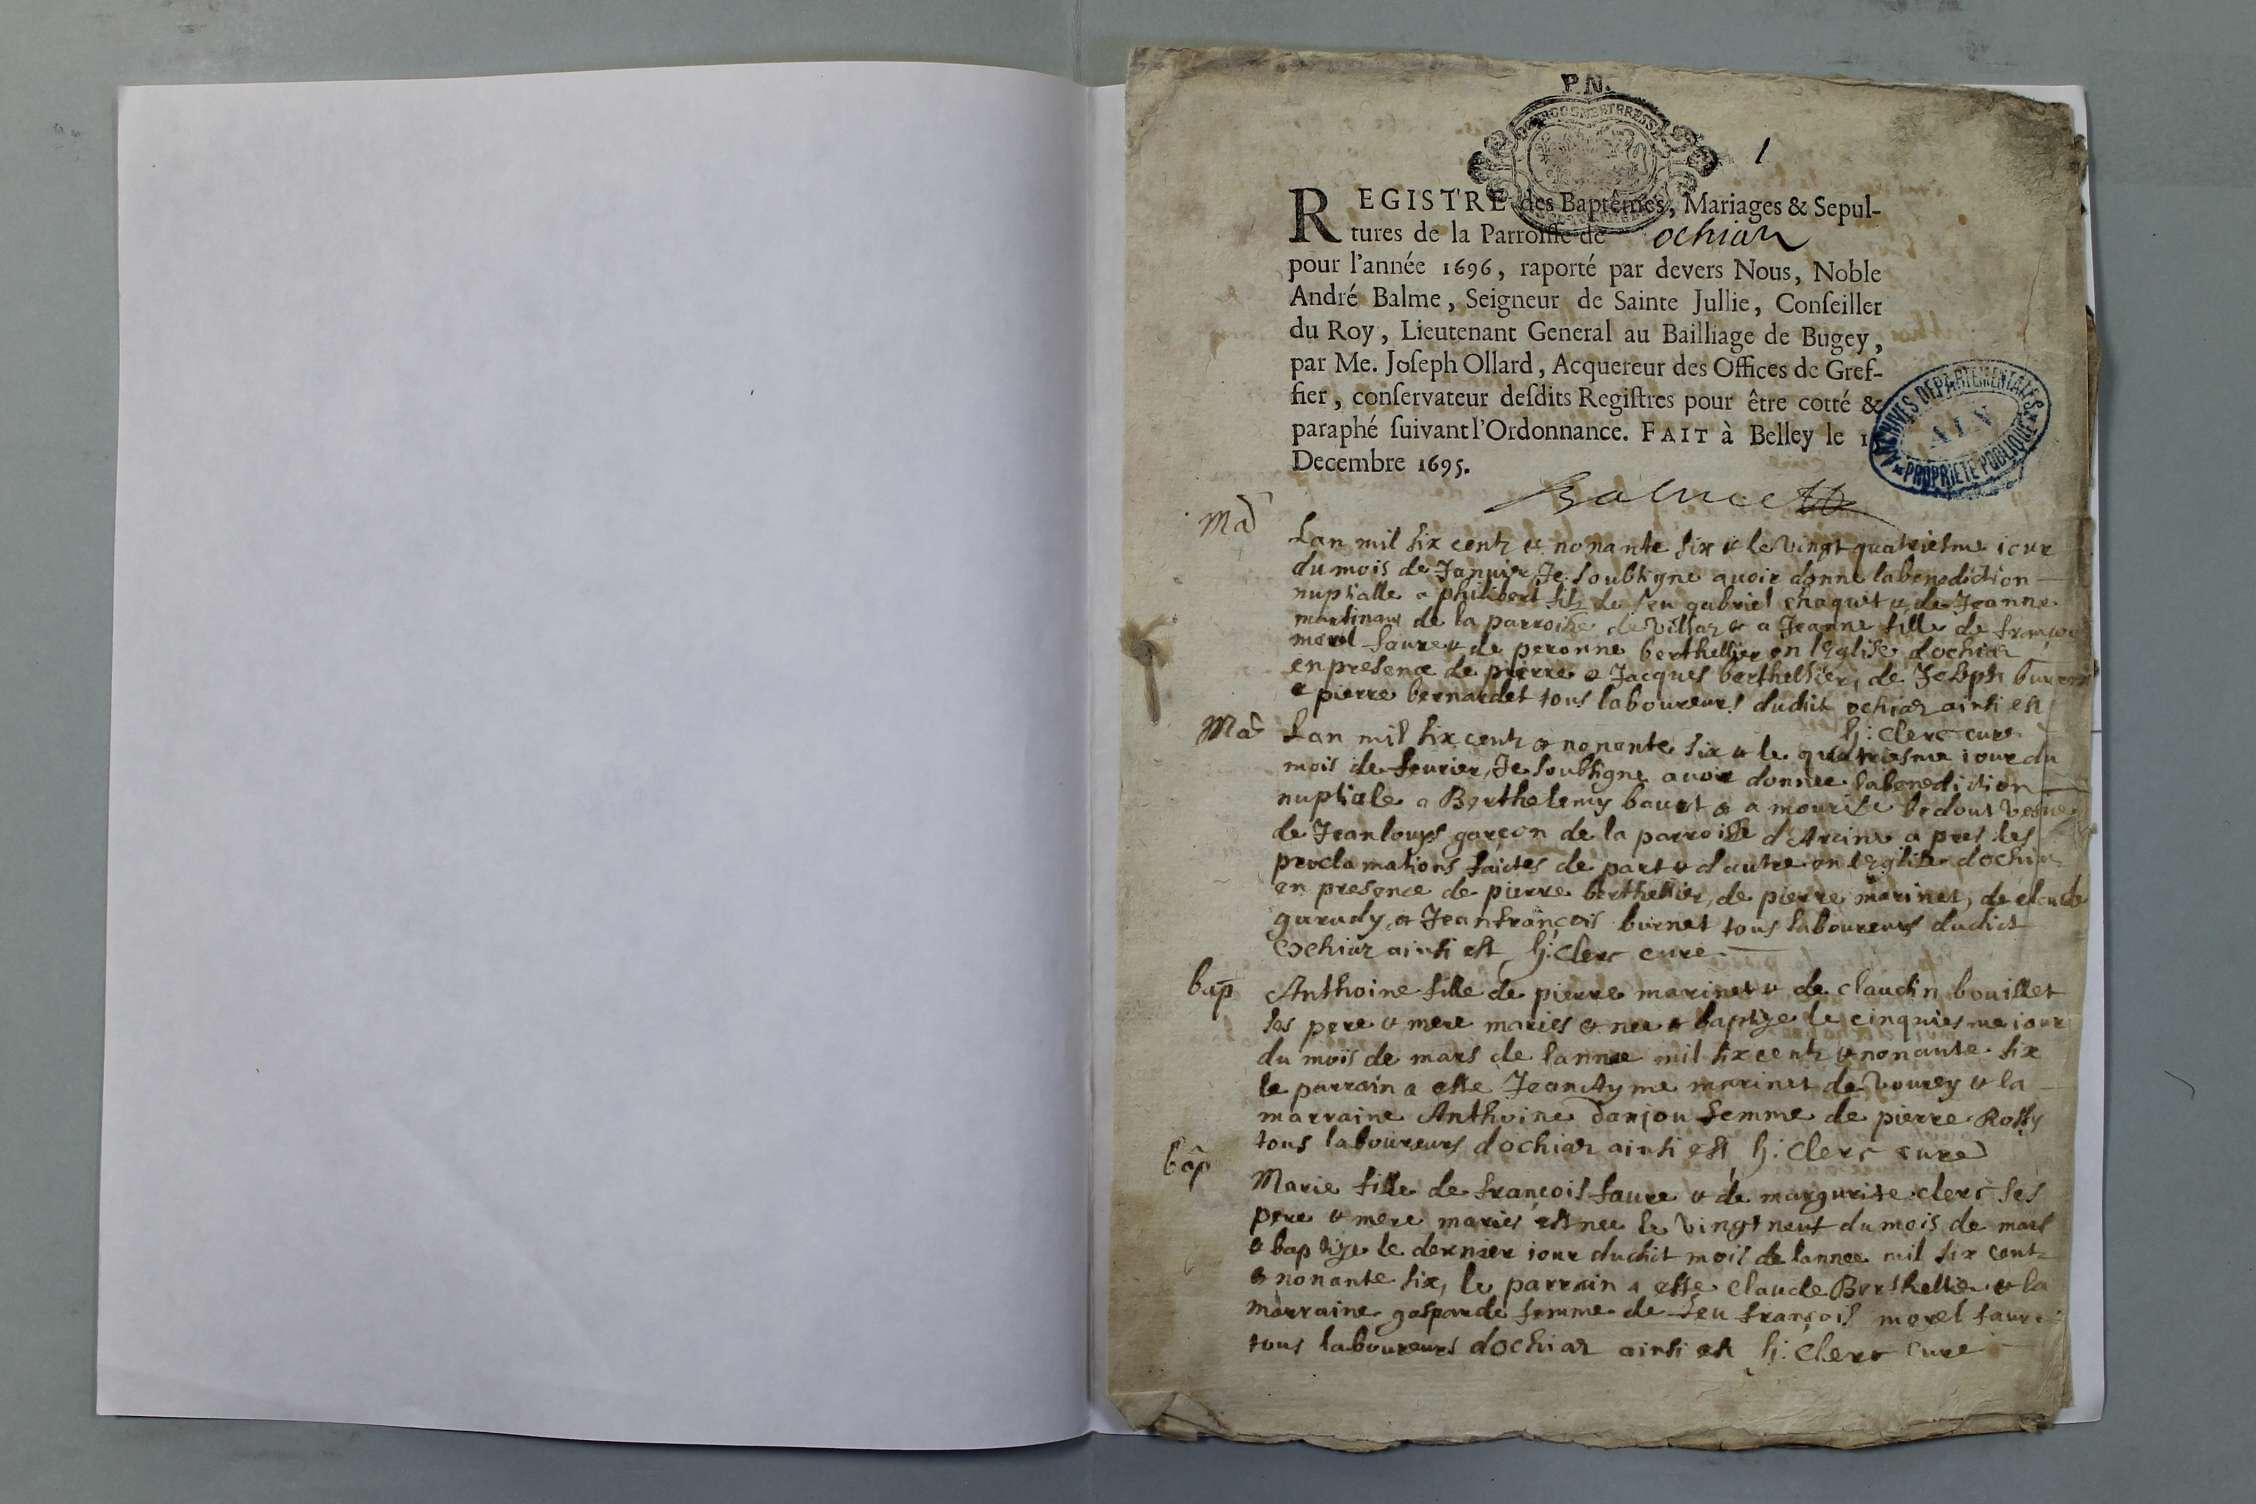 P. N.
1
REGISTRE des Baptêmes, Mariages & Sepul-
tures de la Parroisse de ochiaz
pour l'année 1696, raporté par devers Nous, Noble
André Balme, Seigneur de Sainte Jullie, Conseiller
du Roy, Lieutenant General au Bailliage de Bugey,
par Me. Joseph Ollard, Acquereur des Offices de Gref-
fier, conservateur desdits Registres pour être cotté &
paraphé suivant l'Ordonnance. FAIT à Belley le 1
Decembre 1695.
ARCHIVES DEPARTEMENTALES
AIN
PROPRIETE PUBLIQUE
Balme
Mar
Lan mil six centz & nonante six & le vingt quatriesme iour
du mois de Janvier, Je soubsigne avoir donne la benediction
nuptialle a philibert filz de feu gabriel chaquet & de Jeanne
martinand de la parroisse de villar & a Jeanne fille de françois
morel faure & de peronne berthellier en lEglise dochiaz
en presence de pierre & Jacques berthellier, de Joseph
& pierre bernardet tous laboureurs dudit ochiaz ainsi est
h: Clerc cure
Mar
Lan mil six centz & nonante six & le quatriesme iour du
mois de fevrier, Je soubsigne avoir donnee la benediction
nuptiale a Berthelemy & a
de Jean louys garçon de la parroisse d'Arcine a pres les
proclamations faictes de part & d'autre en lEglise dochiaz
en presence de pierre berthellier, de pierre marinet, de claude
& Jean françois burnet tous laboureurs dudict
Ochiaz ainsi est h: Clerc cure
bap
Anthoine fille de pierre marinet & de claudin bouillet
ses pere & mere maries & nee & baptize le cinquiesme iour
du mois de mars de lannee mil six centz & nonante six
le parrain a este Jean Ayme marinet de vourey & la
marraine Anthoine danjou femme de pierre Rossy
tous laboureurs dochiaz ainsi est h: Clerc cure
bap
Marie fille de françois faure & de margurite clerc ses
pere & mere maries est nee le vingt neuf du mois de mars
& baptize le dernier iour dudit mois de lannee mil six centz
& nonante six, le parrain a este claude Berthellie & la
marraine gasparde femme de feu françois morel faure
tous laboureurs dochiaz ainsi est h: Clerc cure